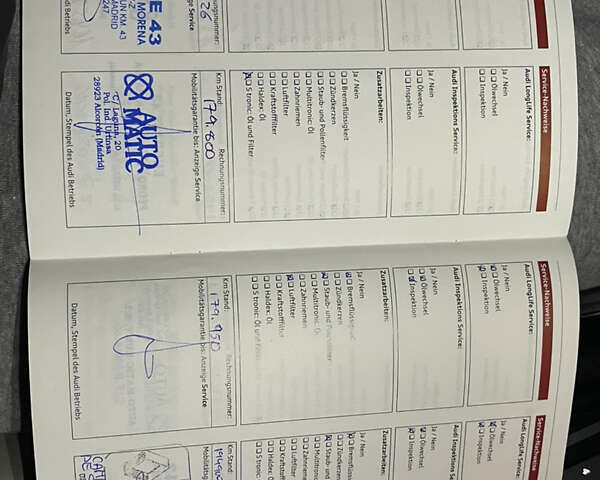 ngsnummer:
26
ge Service
E 43
MORENA
N KM. 43
MADRID
247
Betriebs
Service-Nachweise
Audi LongLife Service:
Ja / Nein
Ölwechsel
Inspektion
Audi Inspektions Service:
Ja / Nein
Ölwechsel
Inspektion
Zusatzarbeiten:
Ja / Nein
Bremsflüssigkeit
Zündkerzen
Staub- und Pollenfilter
Multitronic: Öl
Zahnriemen
Luftfilter
Kraftstofffilter
Haldex: Öl
S tronic: Öl und Filter
Km Stand: Rechnungsnummer:
174.800
Mobilitätsgarantie bis: Anzeige Service
AUTO
MATIC
C/ Laguna, 20
Pol. Ind. Urtinsa
28923 Alcorcón (Madrid)
Datum, Stempel des Audi Betriebs
Service-Nachweise
Audi LongLife Service:
Ja / Nein
Ölwechsel
Inspektion
Audi Inspektions Service:
Ja / Nein
Ölwechsel
Inspektion
Zusatzarbeiten:
Ja / Nein
Bremsflüssigkeit
Zündkerzen
Staub- und Pollenfilter
Multitronic: Öl
Zahnriemen
Luftfilter
Kraftstofffilter
Haldex: Öl
S tronic: Öl und Filter
Km Stand: Rechnungsnummer:
179.950
Mobilitätsgarantie bis: Anzeige Service
Datum, Stempel des Audi Betriebs
Service-Nachweise
Audi LongLife Service:
Ja / Nein
Ölwechsel
Inspektion
Audi Inspektions Se
Ja / Nein
Ölwechsel
Inspektion
Zusatzarbeiten:
Ja / Nein
Bremsflüssig
Zündkerzen
Staub- und
Multitronic
Zahnriemen
Luftfilter
Kraftstofff
Haldex: Ö
S tronic:
Km Stand:
Mobilitätsg